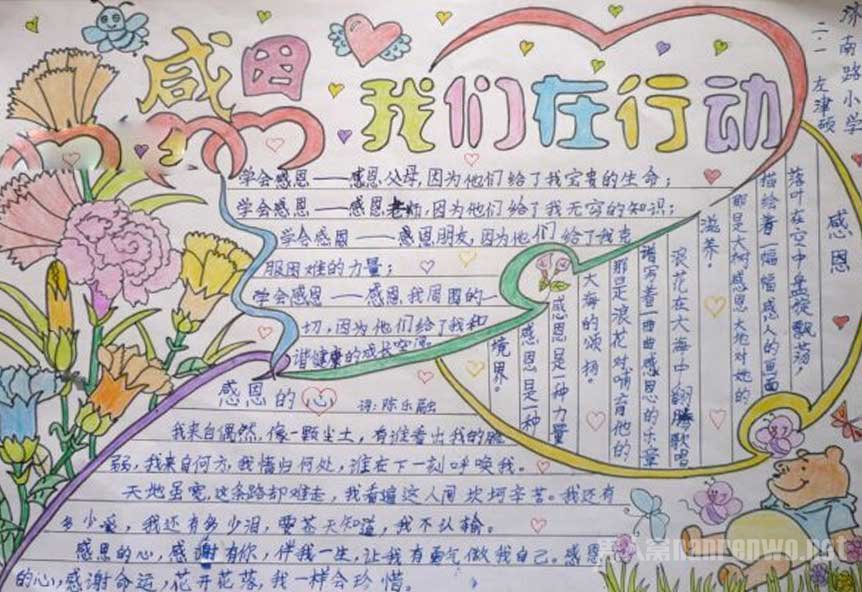 感恩
我们在行动
济南路小学
二.1 左津硕
学会感恩——感恩父母,因为他们给了我宝贵的生命;
学会感恩——感恩老师,因为他们给了我无穷的知识;
学会感恩——感恩朋友,因为他们给了我克
服困难的力量;
学会感恩——感恩我周围的一
切,因为他们给了我和
谐健康的成长空间
感恩
落叶在空中盘旋飘荡,
描绘着一幅幅感人的画面
那是大树感恩大地对她的
滋养。
浪花在大海中翻腾歌唱
谱写着一曲曲感恩的乐章
那是浪花对哺育他的
大海的颂扬。
感恩是一种力量
感恩是一种
境界。
感恩的心
词:陈乐融
我来自偶然,像一颗尘土,有谁看出我的脆
弱,我来自何方,我情归何处,谁在下一刻呼唤我。
天地虽宽,这条路却难走,我看遍这人间坎坷辛苦。我还有
多少爱,我还有多少泪,要苍天知道,我不认输。
感恩的心,感谢有你,伴我一生,让我有勇气做我自己。感恩
的心,感谢命运,花开花落,我一样会珍惜。
nanrenwo.net